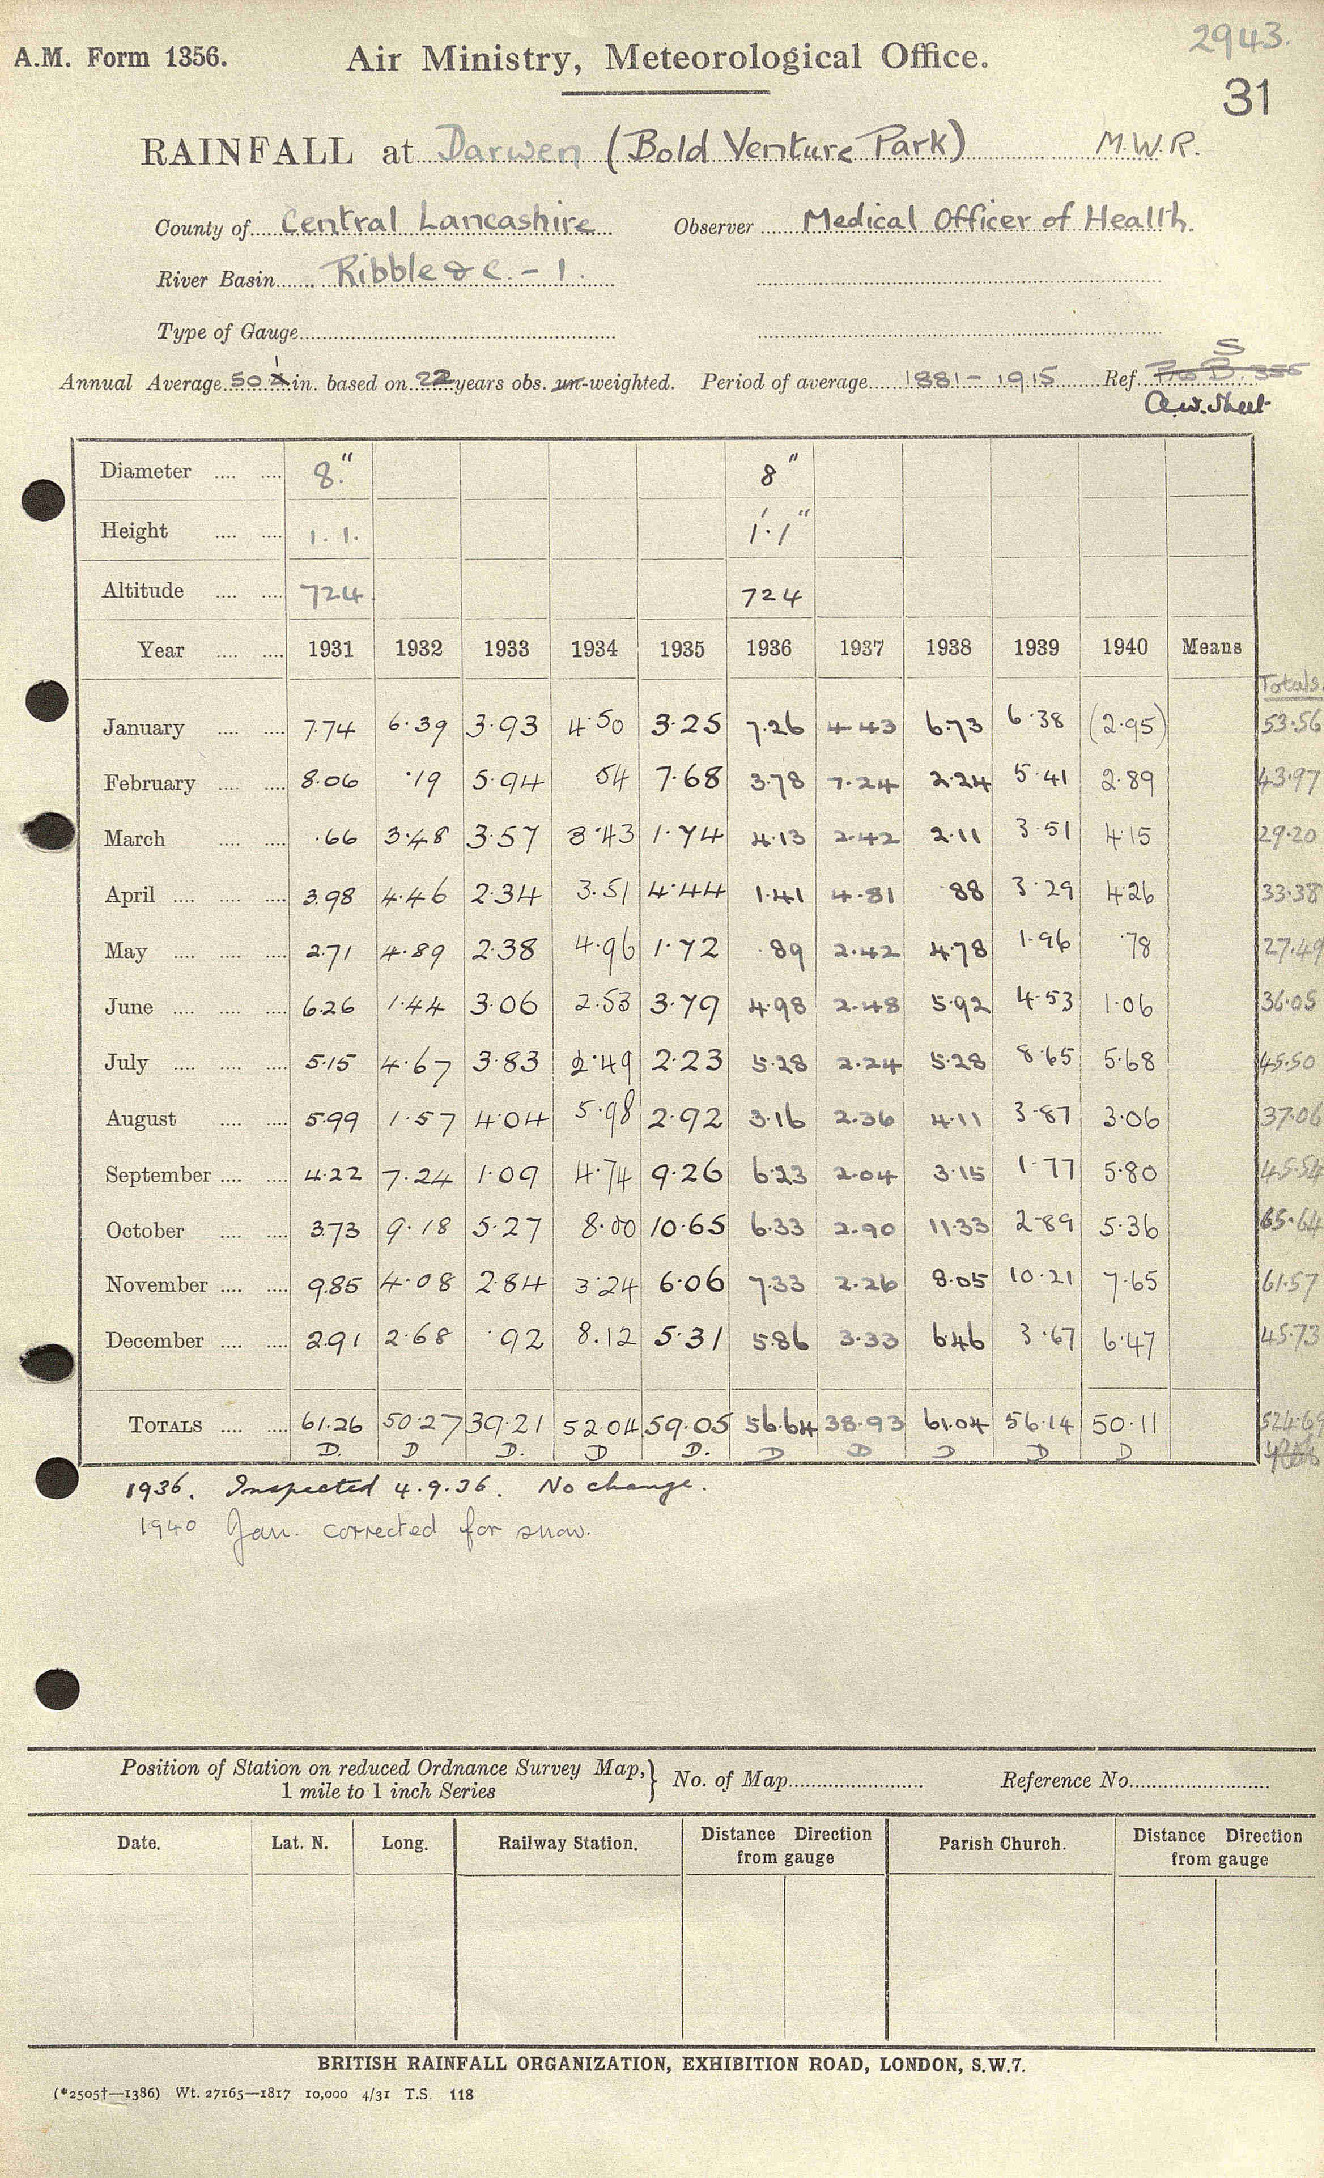 2943.
A.M. Form 1356. Air Ministry, Meteorological Office.
31
RAINFALL at Darwen (Bold Venture Park) M.W.R.
County of Central Lancashire Observer Medical Officer of Health.
River Basin Ribble &c. - 1.
Type of Gauge
S
Annual Average 50.1 in. based on 22 years obs. un-weighted. Period of average 1881 - 1915 Ref. Pro B. 355
Aw. Sheet
Diameter 8." 8"
Height 1. 1. 1'.1"
Altitude 724 724
Year 1931 1932 1933 1934 1935 1936 1937 1938 1939 1940 Means
Totals.
January 7.74 6.39 3.93 4.50 3.25 7.26 4.43 6.73 6.38 (2.95) 53.56
February 8.06 .19 5.94 .54 7.68 3.78 7.24 2.24 5.41 2.89 43.97
March .66 3.48 3.57 3.43 1.74 4.13 2.42 2.11 3.51 4.15 29.20
April 3.98 4.46 2.34 3.51 4.44 1.41 4.81 .88 3.29 4.26 33.38
May 2.71 4.89 2.38 4.96 1.72 .89 2.42 4.78 1.96 .78 27.49
June 6.26 1.44 3.06 2.53 3.79 4.98 2.48 5.92 4.53 1.06 36.05
July 5.15 4.67 3.83 2.49 2.23 5.28 2.24 5.28 8.65 5.68 45.50
August 5.99 1.57 4.04 5.98 2.92 3.16 2.36 4.11 3.87 3.06 37.06
September 4.22 7.24 1.09 4.74 9.26 6.23 2.04 3.15 1.77 5.80 45.54
October 3.73 9.18 5.27 8.00 10.65 6.33 2.90 11.33 2.89 5.36 65.64
November 9.85 4.08 2.84 3.24 6.06 7.33 2.26 8.05 10.21 7.65 61.57
December 2.91 2.68 .92 8.12 5.31 5.86 3.33 6.46 3.67 6.47 45.73
TOTALS 61.26 50.27 39.21 52.04 59.05 56.64 38.93 61.04 56.14 50.11 524.69
D. D D. D D. D D D D D
1936. Inspected 4.9.36. No change.
1940 Jan. corrected for snow.
Position of Station on reduced Ordnance Survey Map, } No. of Map Reference No.
1 mile to 1 inch Series
Date. Lat. N. Long. Railway Station. Distance Direction Parish Church. Distance Direction
from gauge from gauge
BRITISH RAINFALL ORGANIZATION, EXHIBITION ROAD, LONDON, S.W.7.
(*2505†—1386) Wt. 27165—1817 10,000 4/31 T.S. 118